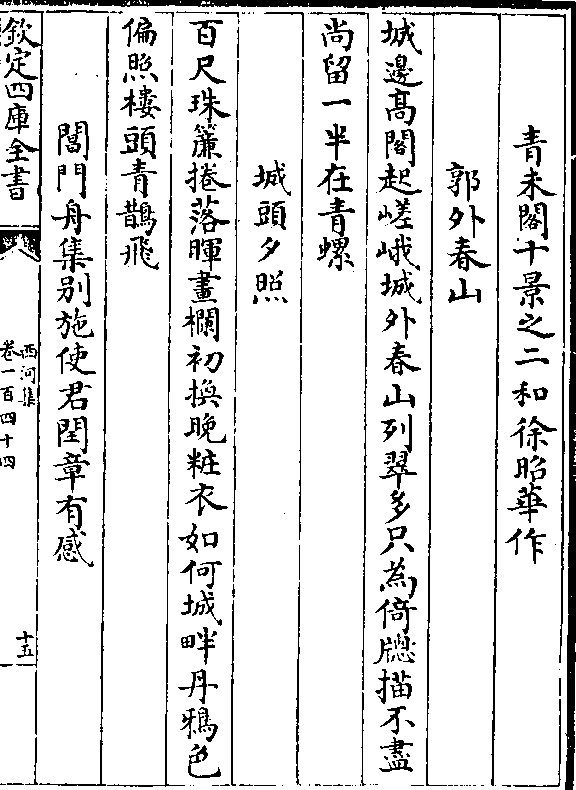 青未閣十景之二和徐昭華作
郭外春山
城邊髙閣起嵯峨城外春山列翠多只為倚牕描不盡
尚留一半在青螺
城頭夕照
百尺珠簾捲落暉畫欄初換晚粧衣如何城畔丹鴉色
偏照樓頭青鵲飛
閶門舟集别施使君閏章有感
欽定四庫全書
西河集
卷一百四十四
十五